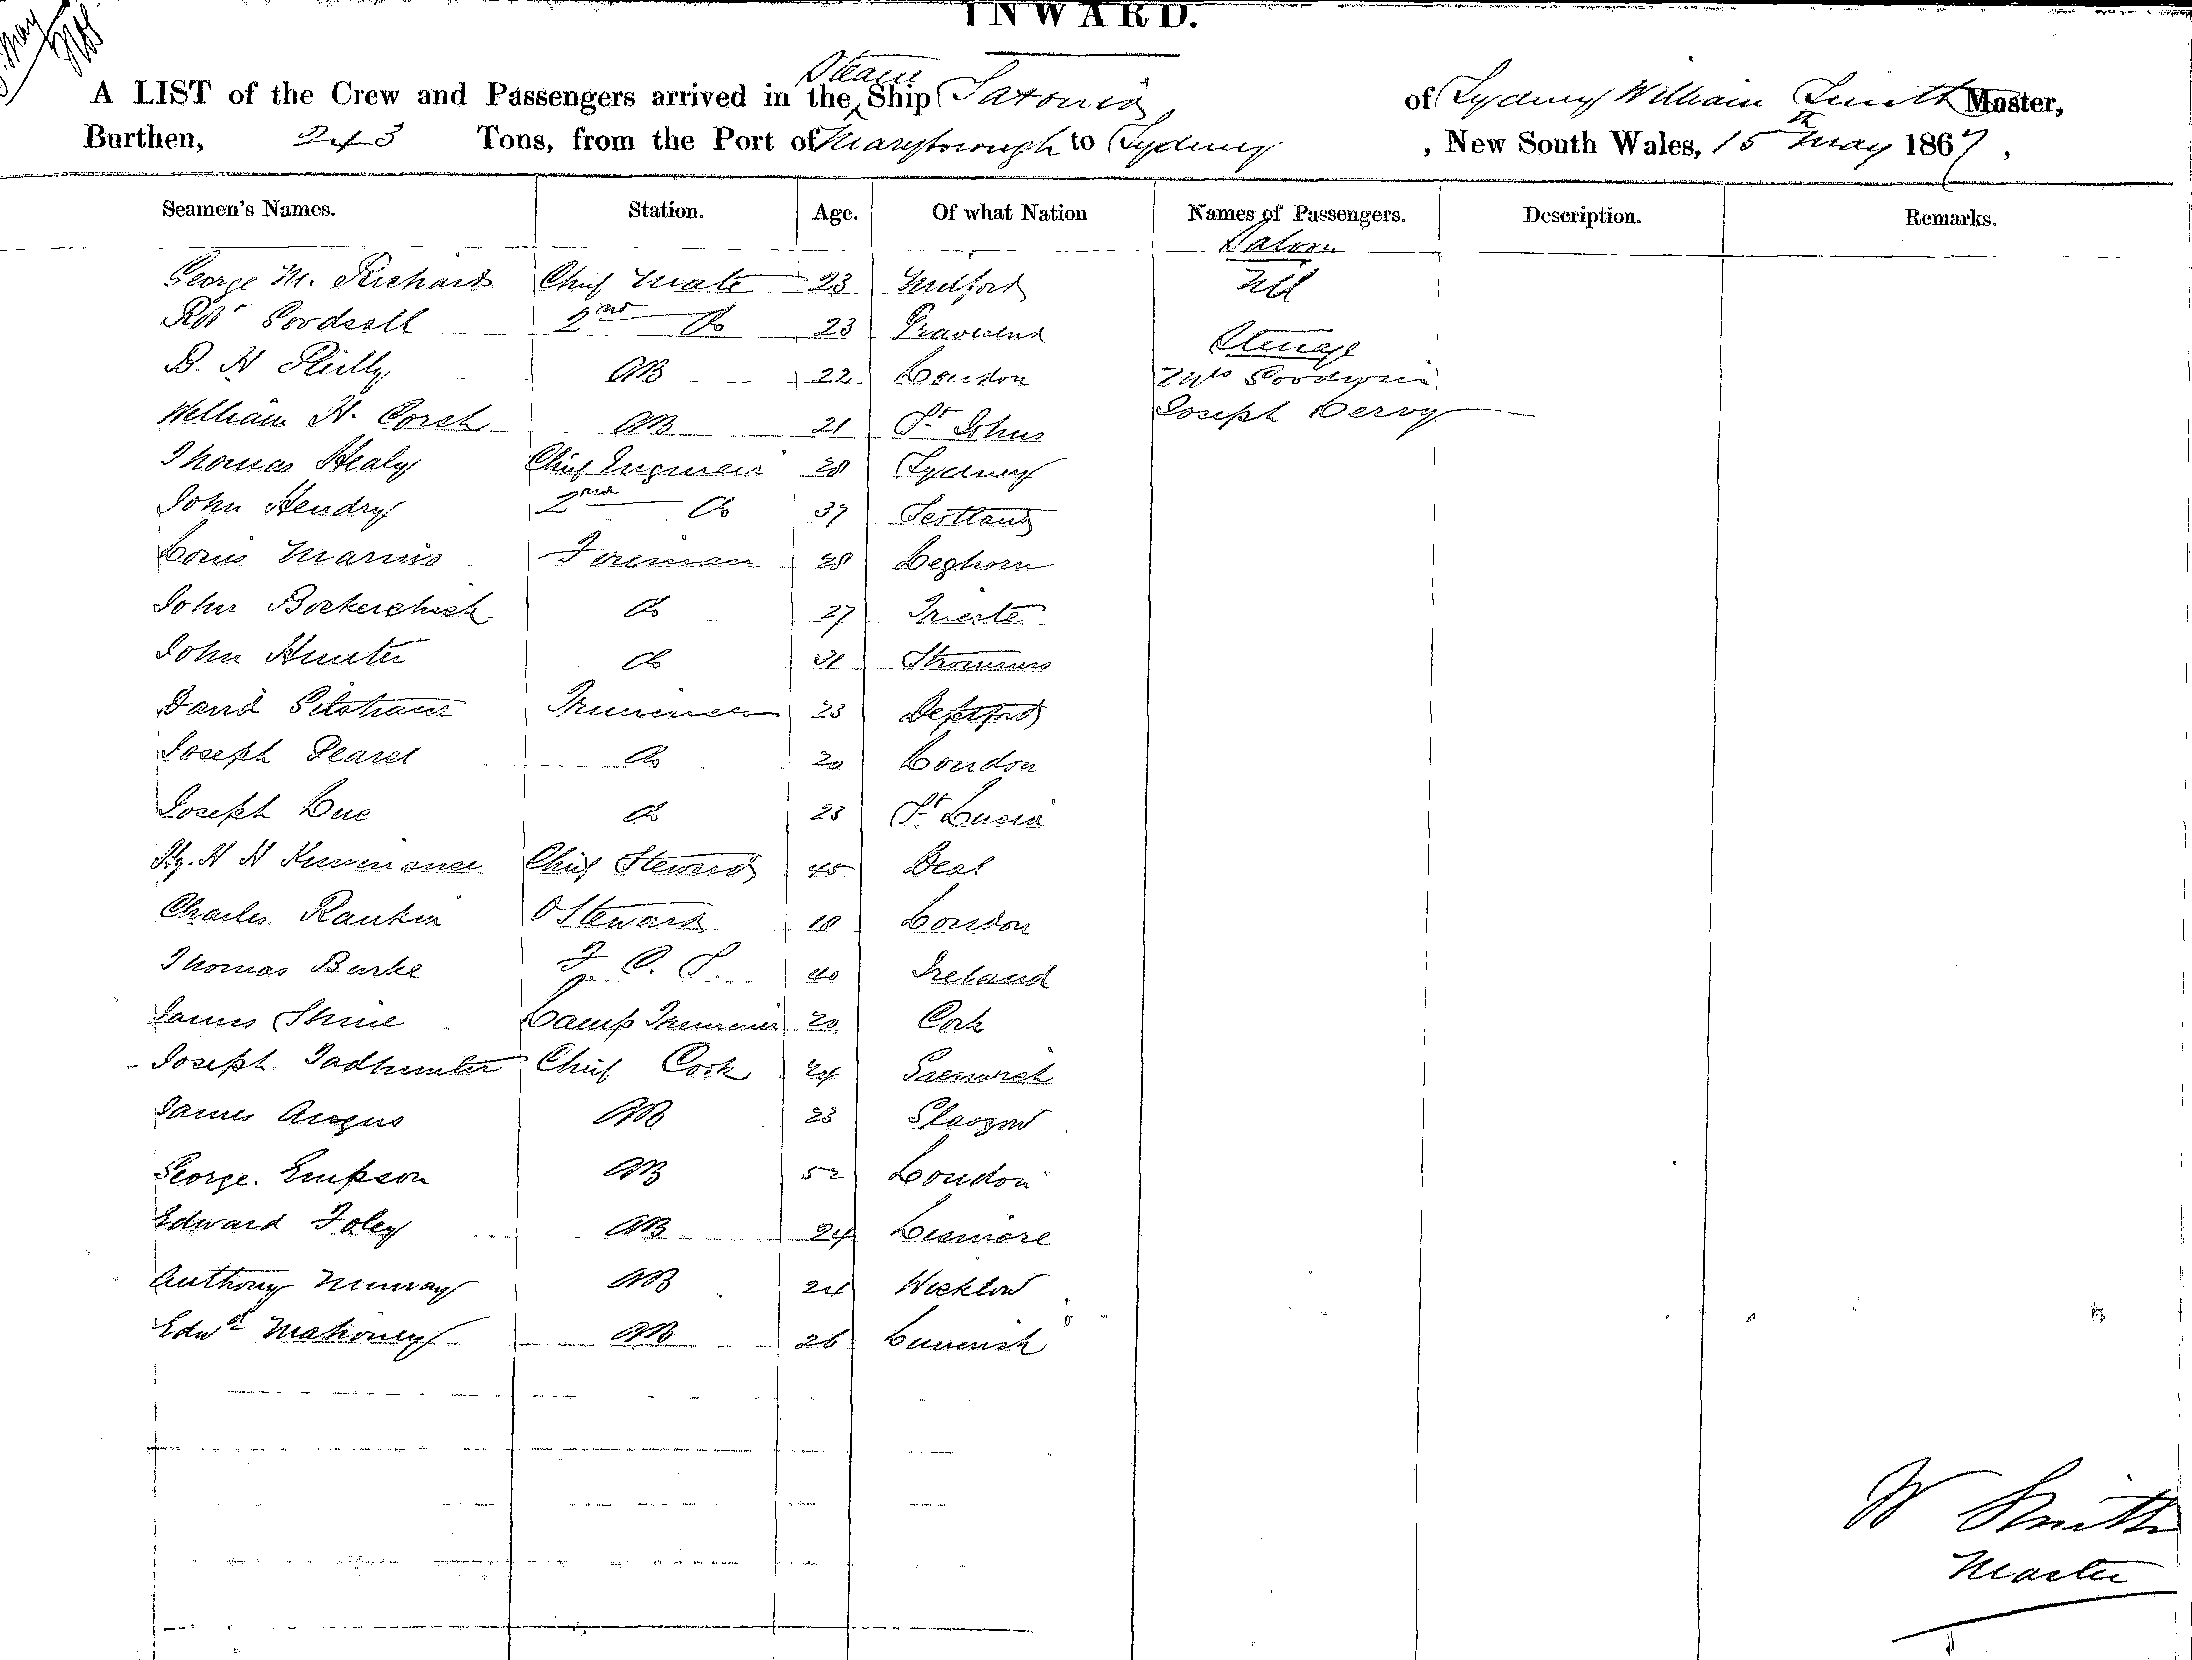 INWARD.
May
A LIST of the Crew and Passengers arrived in the Steam Ship Saxonia of Sydney William Smith Master,
Burthen, 243 Tons, from the Port of Maryborough to Sydney, New South Wales, 15th May 1867,
Seamen's Names. Station. Age. Of what Nation Names of Passengers. Description. Remarks.
Saloon
George M. Richard Chief Mate 23 Milford Nil
Robt Goodsall 2nd Do 23 Gravesend
Steerage
B. H Reilly AB 22 London Mrs Goodwin
William H. Corch AB 21 St Johns Joseph Leroy
Thomas Healy Chief Engineer 28 Sydney
John Hendry 2nd Do 37 Scotland
Louis Marins Fireman 28 Leghorn
John Do 27 Trieste
John Hunter Do 31 Stromness
David Trimmer 23 Deptford
Joseph Pearce Do 20 London
Joseph Luc Do 23 St Lucia
Hy. H H Chief Steward 45 Deal
Charles Rankin Steward 18 London
Thomas Burke F. C. S. 40 Ireland
James Shine Lamp Trimmer 20 Cork
Joseph Tadhunter Chief Cook 24 Greenwich
James Angus AB 23 Glasgow
George Empson AB 52 London
Edward Foley AB 24 Lismore
Anthony Murray AB 24 Wicklow
Edwd Mahoney AB 26 Limerick
W Smith
Master